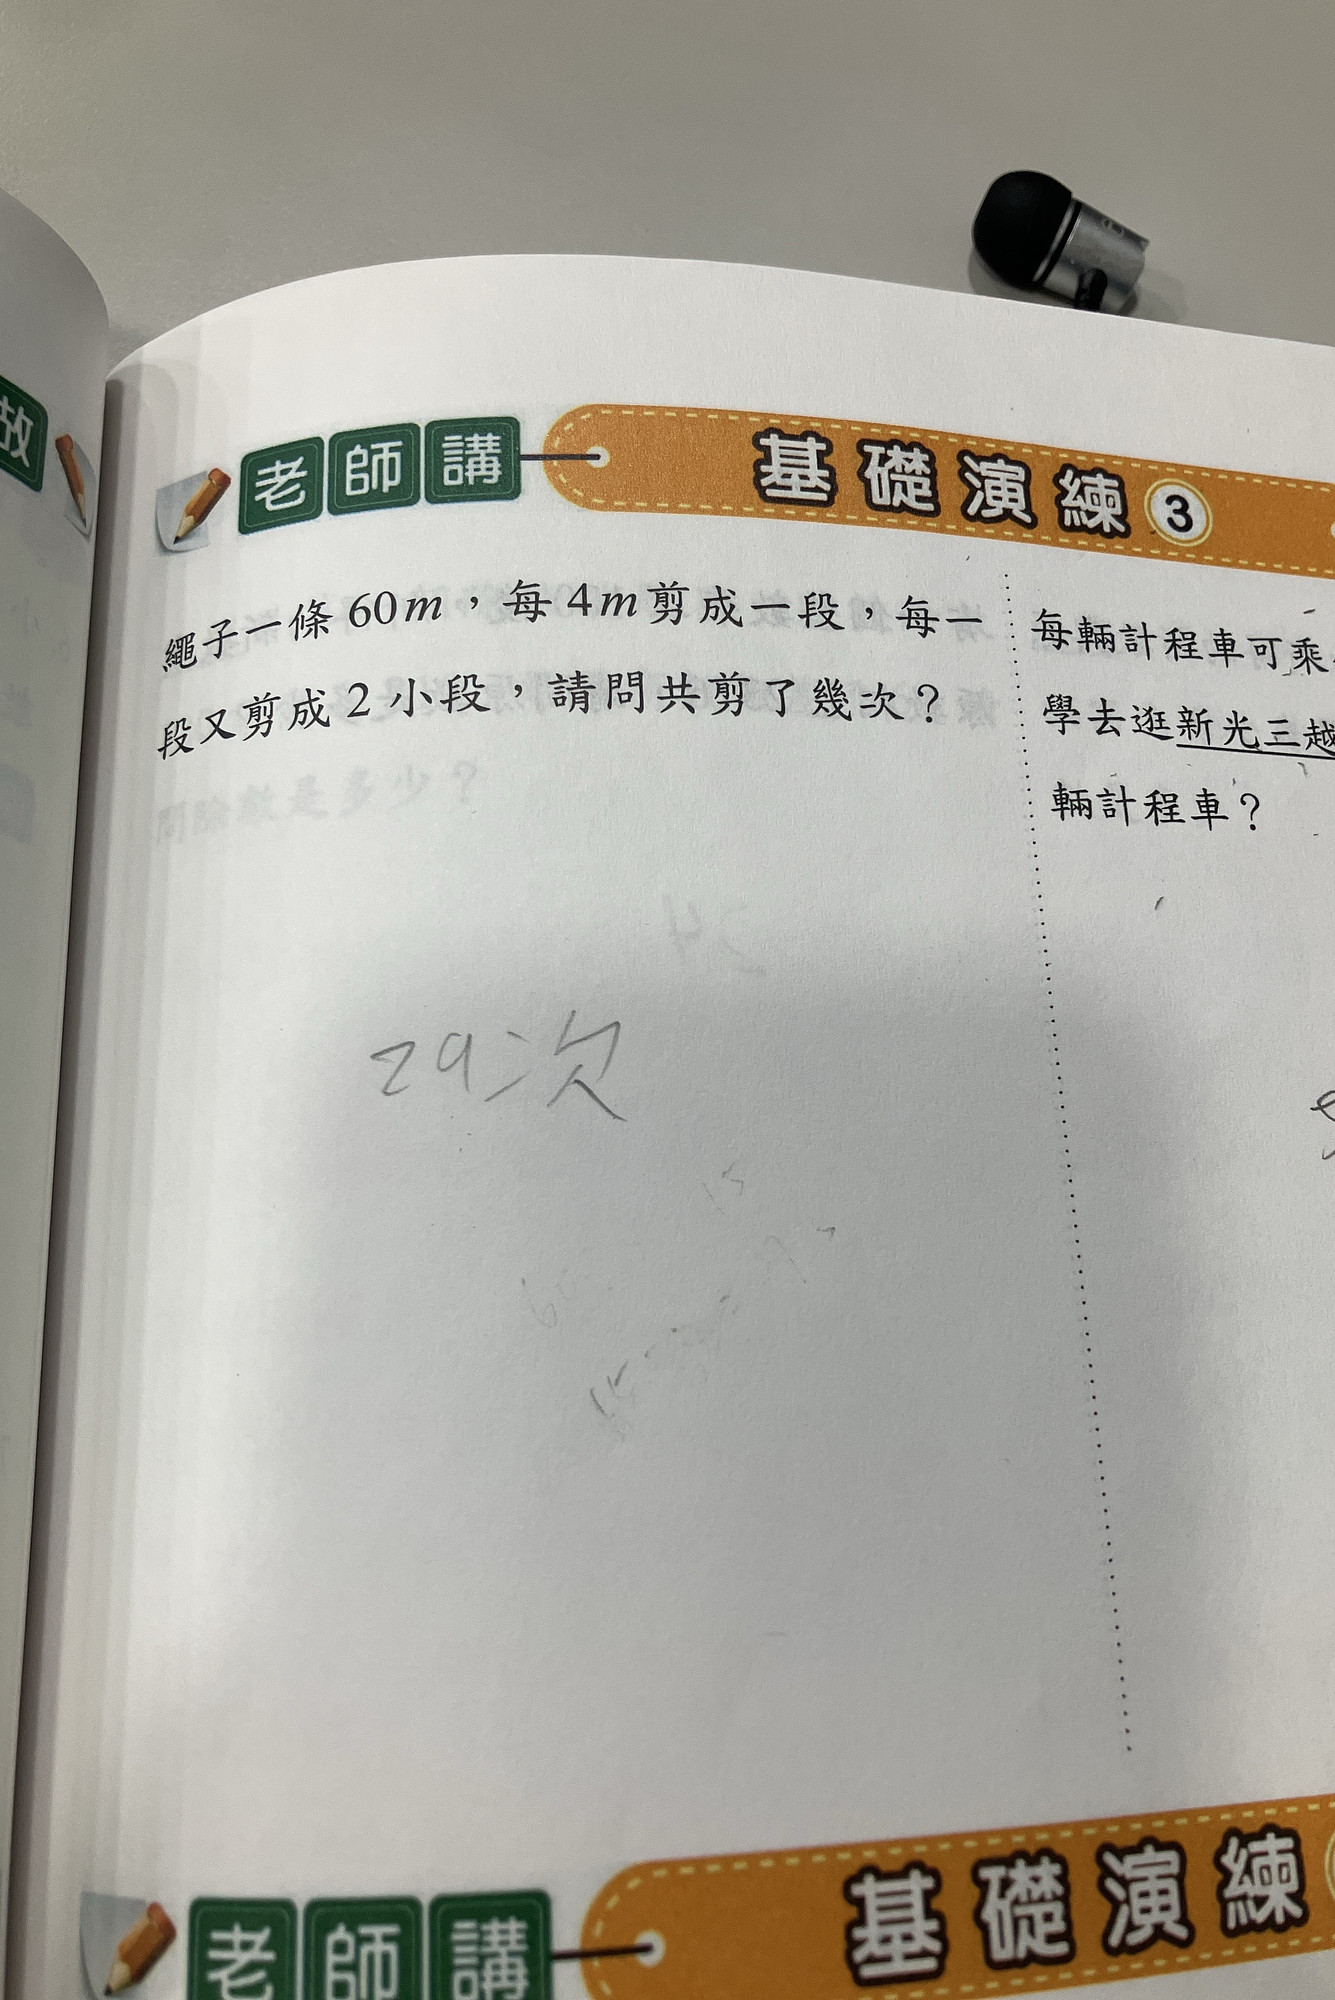 故
老師講
基礎演練3
繩子一條60m，每4m剪成一段，每一
段又剪成2小段，請問共剪了幾次？
29次
每輛計程車可乘
學去逛新光三越
輛計程車？
老師講
基礎演練